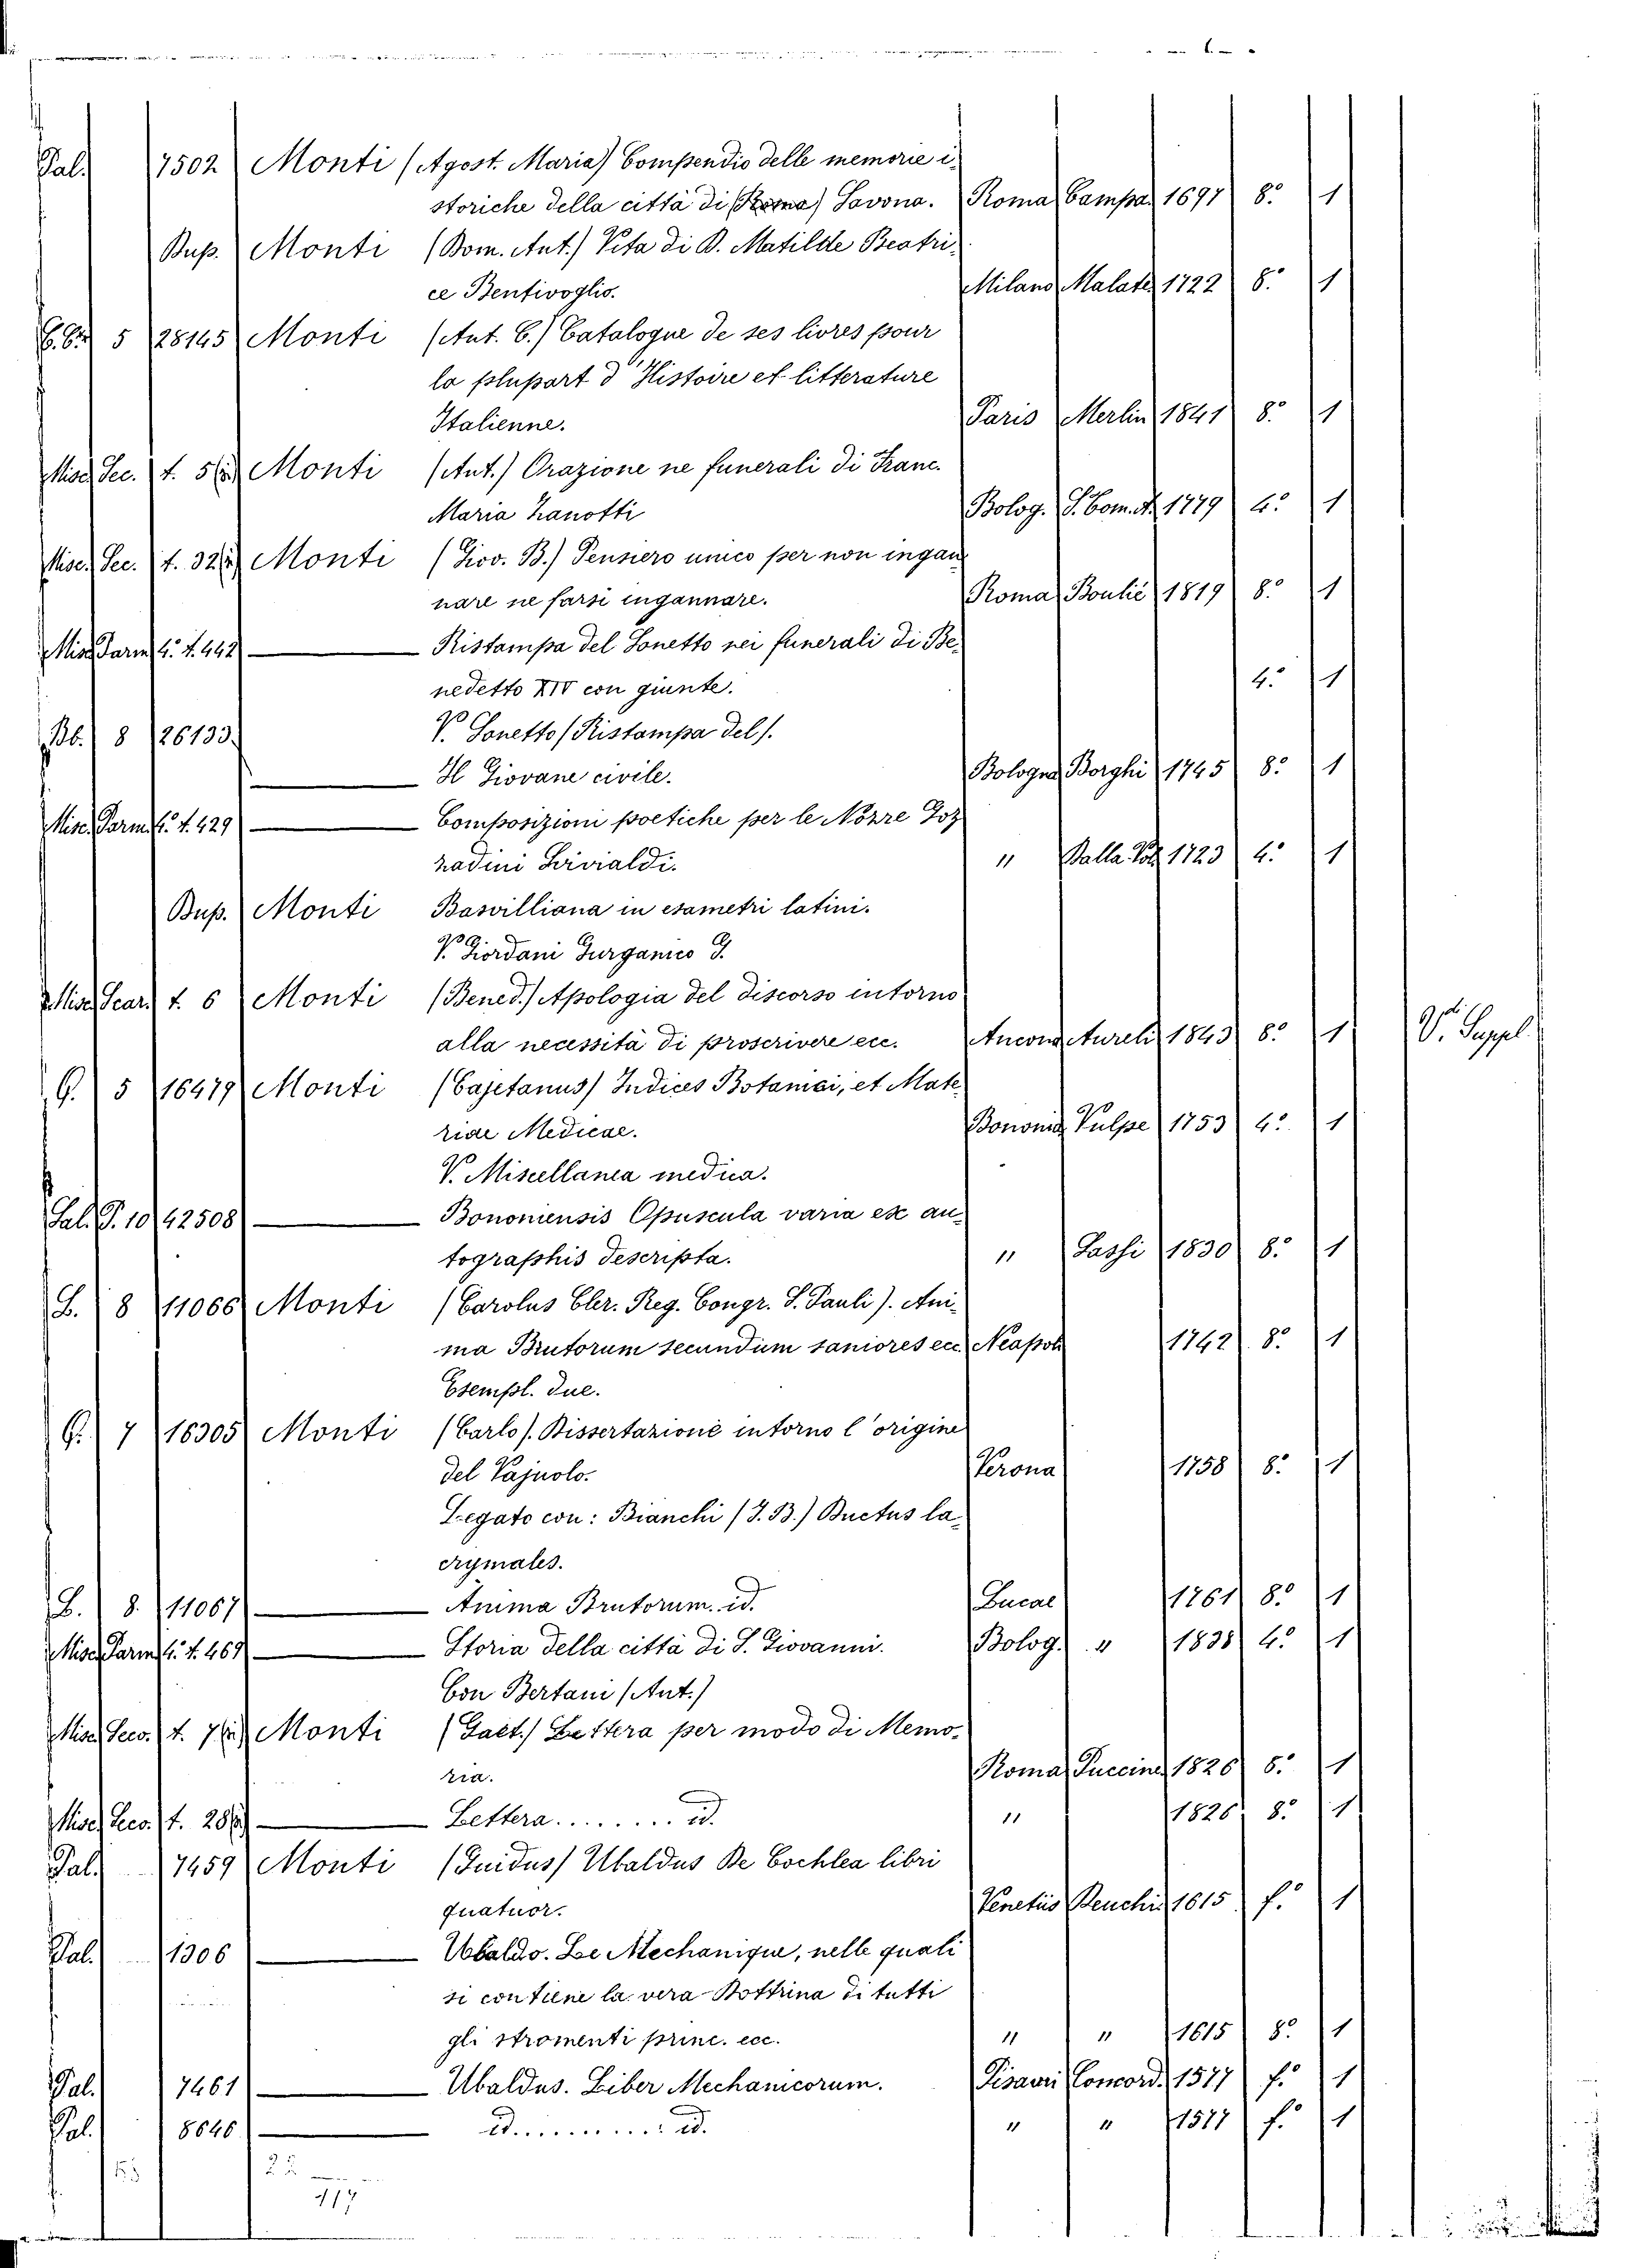 Pal. 7502 Monti (Agost. Maria) Compendio delle memorie i-
storiche della città di (Roma) Savona. Roma Campa. 1697 8.° 1
Dup. Monti (Dom. Ant.) Vita di D. Matilde Beatri-
ce Bentivoglio. Milano Malate. 1722 8.° 1
5 28145 Monti (Ant. C.) Catalogue de ses livres pour
la plupart d'Histoire et litterature
Italienne. Paris Merlin 1841 8.° 1
Misc. Sec. t. 5 Monti (Ant.) Orazione ne funerali di Franc.
Maria Zanotti Bolog. S. Tom. d'A. 1779 4.° 1
Misc. Sec. t. 32 Monti (Giov. B.) Pensiero unico per non ingan-
nare ne farsi ingannare. Roma Boulié 1819 8.° 1
Misc. Parm. 4.° t. 442 — Ristampa del Sonetto nei funerali di Be-
nedetto XIV con giunte. 4.° 1
V. Sonetto (Ristampa del).
Bb. 8 26133 — Il Giovane civile. Bologna Borghi 1745 8.° 1
Misc. Parm. 4.° t. 429 — Composizioni poetiche per le Nozze Goz-
zadini Livialdi. " Dalla Vol. 1723 4.° 1
Dup. Monti Basvilliana in esametri latini.
V. Giordani Gurganico G.
Misc. Scar. t. 6 Monti (Bened.) Apologia del discorso intorno
alla necessità di proscrivere ecc. Ancona Aureli 1843 8.° 1 V. Suppl.
G. 5 16479 Monti (Cajetanus) Indices Botanici, et Mate-
riae Medicae. Bononia Vulpe 1753 4.° 1
V. Miscellanea medica.
Sal. P. 10 42508 — Bononiensis Opuscula varia ex au-
tographis descripta. " Sassi 1830 8.° 1
B. 8 11066 Monti (Carolus Cler. Reg. Congr. S. Pauli). Ani-
ma Brutorum secundum saniores ecc. Neapoli 1742 8.° 1
Esempl. due.
G. 7 16305 Monti (Carlo). Dissertazione intorno l'origine
del Vajuolo. Verona 1758 8.° 1
Legato con: Bianchi (J. B.) Ductus la-
crymales.
B. 8. 11067 — Anima Brutorum. id. Lucae 1761 8.° 1
Misc. Parm. 4.° t. 467 — Storia della città di S. Giovanni. Bolog. " 1838 4.° 1
Con Bertani (Ant.)
Misc. Seco. t. 7 Monti (Gaet.) Lettera per modo di Memo-
ria. Roma Puccine. 1826 8.° 1
Misc. Seco. t. 28 — Lettera........ id. " 1826 8.° 1
Pal. 7459 Monti (Guidus) Ubaldus De Cochlea libri
quatuor. Venetiis Deuchi. 1615 f.° 1
Pal. 1306 — Ubaldo. Le Mechanique, nelle quali
si contiene la vera Dottrina di tutti
gli stromenti princ. ecc. " " 1615 8.° 1
Pal. 7461 — Ubaldus. Liber Mechanicorum. Pisauri Concord. 1577 f.° 1
Pal. 8646 — id............ id. " " 1577 f.° 1
22
117